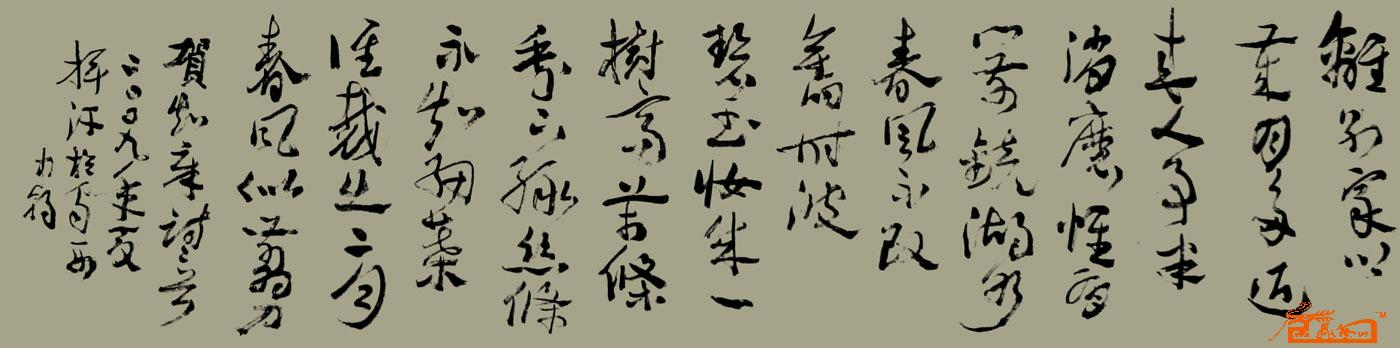 離別家鄉
歲月多近
來人事半
消磨惟有
門前鏡湖水
春風不改
舊時波
碧玉妝成一
樹高萬條
垂下綠絲條
不知細葉
誰裁出二月
春風似剪刀
賀知章詩二首
二〇〇九年夏
揮汗於蜀西